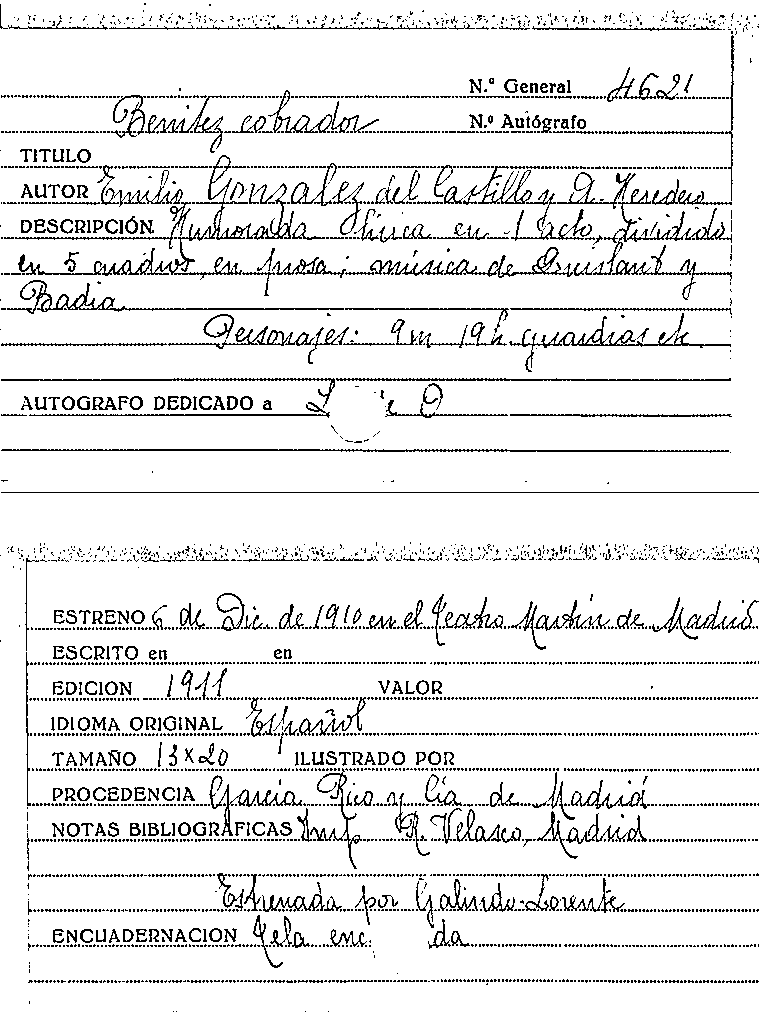 N.º General 4621
Benitez cobrador N.º Autógrafo
TITULO
AUTOR Emilio Gonzalez del Castillo y A. Heredero
DESCRIPCIÓN Humorada lírica en 1 acto, dividido
en 5 cuadros, en prosa; música de Quislant y
Badia
Personajes: 9 m 19 h. guardias etc.
AUTOGRAFO DEDICADO a
ESTRENO 6 de Dic. de 1910 en el Teatro Martín de Madrid
ESCRITO en en
EDICION 1911 VALOR
IDIOMA ORIGINAL Español
TAMAÑO 13 x 20 ILUSTRADO POR
PROCEDENCIA García Rico y Cía de Madrid
NOTAS BIBLIOGRÁFICAS Imp R. Velasco, Madrid
Estrenada por Galindo-Lorente
ENCUADERNACION Tela enc. da